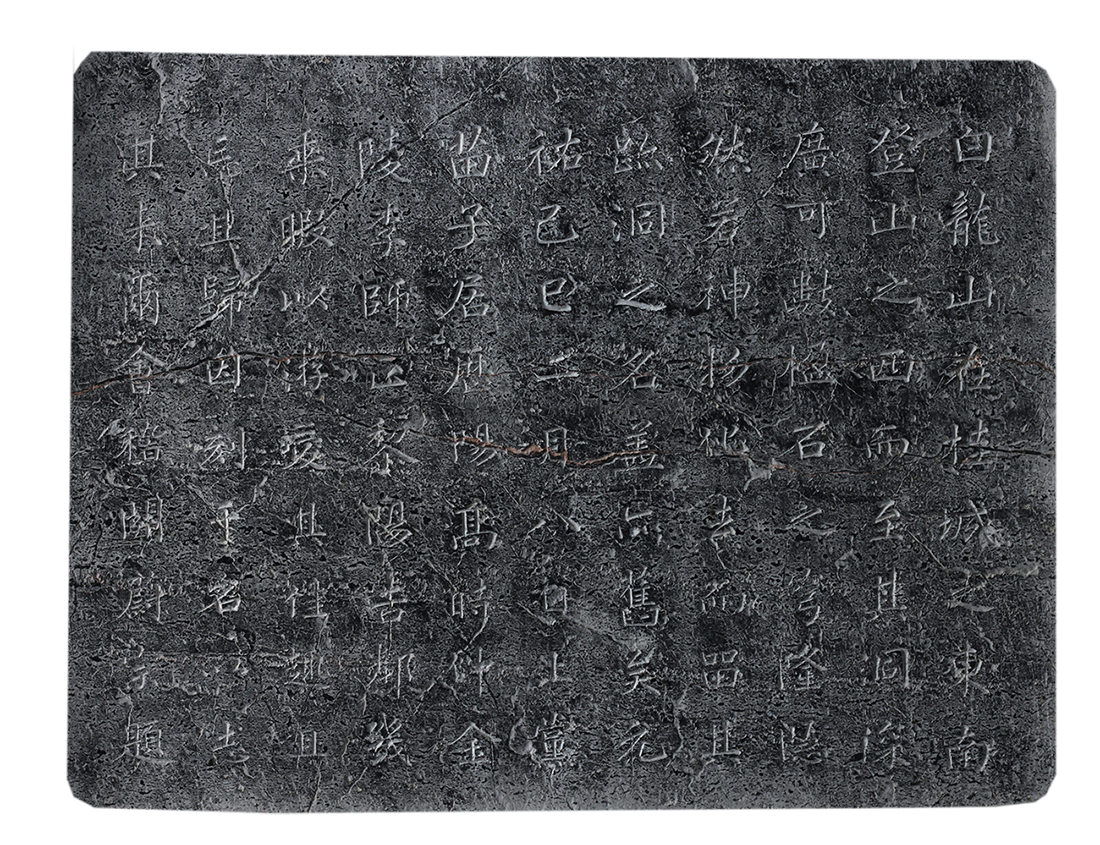 白龍山在桂城之東南
登山之西而至其洞深
廣可數楹石之穹隆儼
然若神物蛻去而留其
跡洞之名蓋亦舊矣元
祐己巳二月八日上黨
苗子居歷陽髙時仲金
陵李師正黎陽吉鄰幾
來暇以游愛其佳趣且
忘其歸因刻于石以志
其末爾會稽關蔚宗題